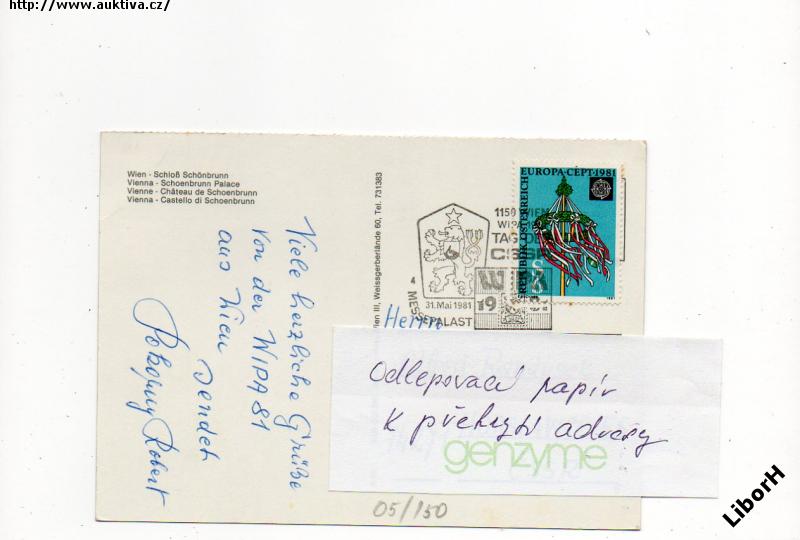 http://www.auktiva.cz/
Wien - Schloß Schönbrunn
Vienna - Schoenbrunn Palace
Vienne - Château de Schoenbrunn
Vienna - Castello di Schoenbrunn
Viele herzliche Grüße
von der WIPA 81
aus Wien
sendet
Pokorny Robert
Wien III, Weissgerberlände 60, Tel. 731383
1150 WIEN
WIPA
TAG DER
CSSR
4
31. Mai 1981
MESSEPALAST
W
19
EUROPA-CEPT·1981
REPUBLIK ÖSTERREICH
Herrn
Odlepovací papír
k překrytí adresy
genzyme
05/150
LiborH